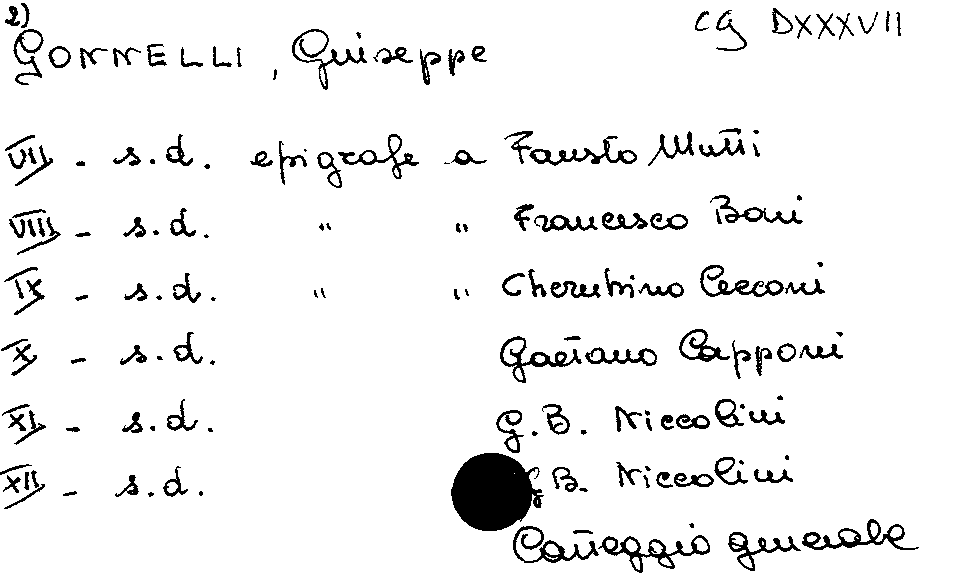 2)
GONNELLI, Giuseppe CG DXXXVII
VII - s.d. epigrafe a Fausto Mutti
VIII - s.d. " " Francesco Boni
IX - s.d. " " Cherubino Cecconi
X - s.d. Gaetano Capponi
XI - s.d. G.B. Niccolini
XII - s.d. G.B. Niccolini
Carteggio generale